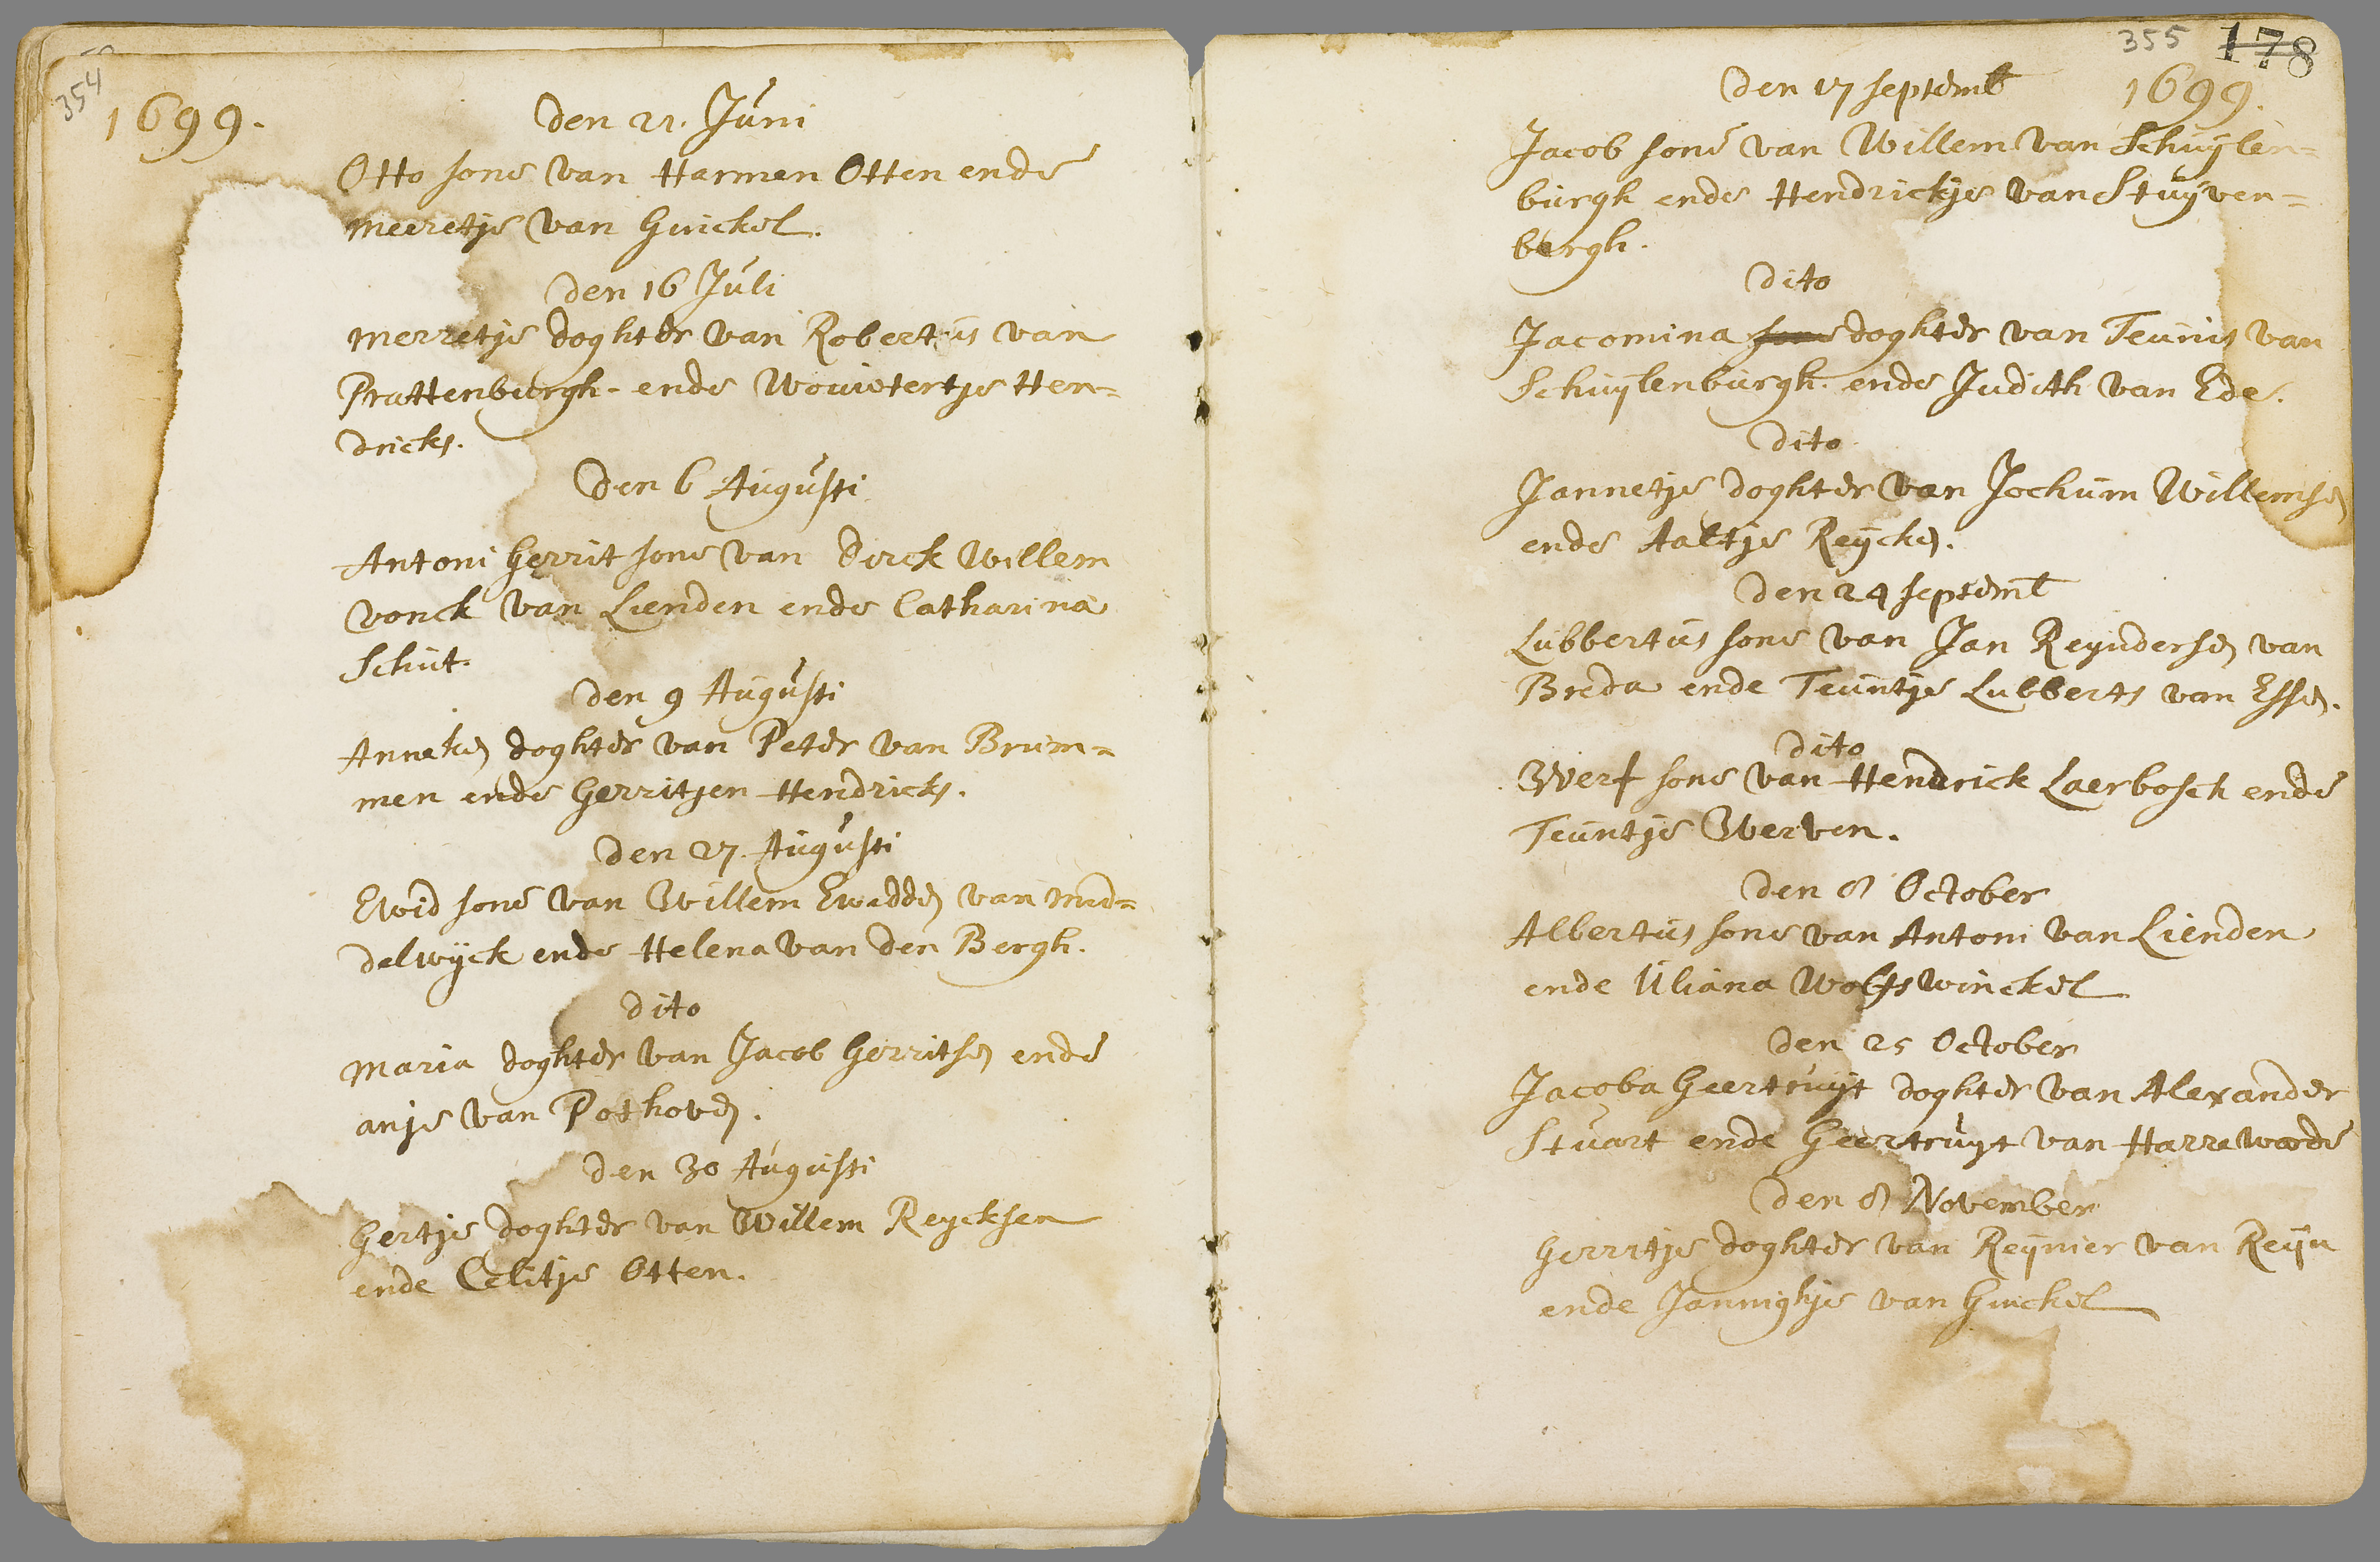 354
1699.
Den 21. Juni
Otto sone van Harmen Otten ende
Meeretje van Ginckel.
Den 16 Juli
Merretje doghter van Robertus van
Prattenburgh. ende Wouietertje Hen=
dricks.
Den 6 Augusti
Antoni Gerrit sone van Dirck Willem
vonck van Lienden ende Catharina
Schut.
Den 9 Augusti
Anneken doghter van Peter van Brum=
men ende Gerritjen Hendricks.
Den 27. Augusti
Ewid sone van Willem Ewidden van Mid=
delwijck ende Helena van den Bergh.
dito
Maria doghter van Jacob Gerritsen ende
anje van Pothoven.
Den 30 Augusti
Gertje doghter van Willem Reycksen
ende Celitje Otten.
355 178
Den 17 septemb
1699.
Jacob sone van Willem van Schuylen=
burgh ende Hendrickje van Stuyven=
bergh.
dito
Jacomina sone doghter van Teunis van
Schuylenburgh. ende Judith van Ede.
dito
Jannetje doghter van Jochum Willemsen
ende Aaltje Reycken.
Den 24 septemb
Lubbertus sone van Jan Reyndersen van
Breda ende Teuntje Lubberts van Essen.
dito
Werf sone van Hendrick Laerbosch ende
Teuntje Werven.
Den 8 October
Albertus sone van Antoni van Lienden
ende Uliana Wolfswinckel
Den 25 October
Jacoba Geertruyt doghter van Alexander
Stuart ende Geertruyt van Harrewarde
Den 8 November
Gerritje doghter van Reynier van Reyn
ende Jannighje van Ginckel